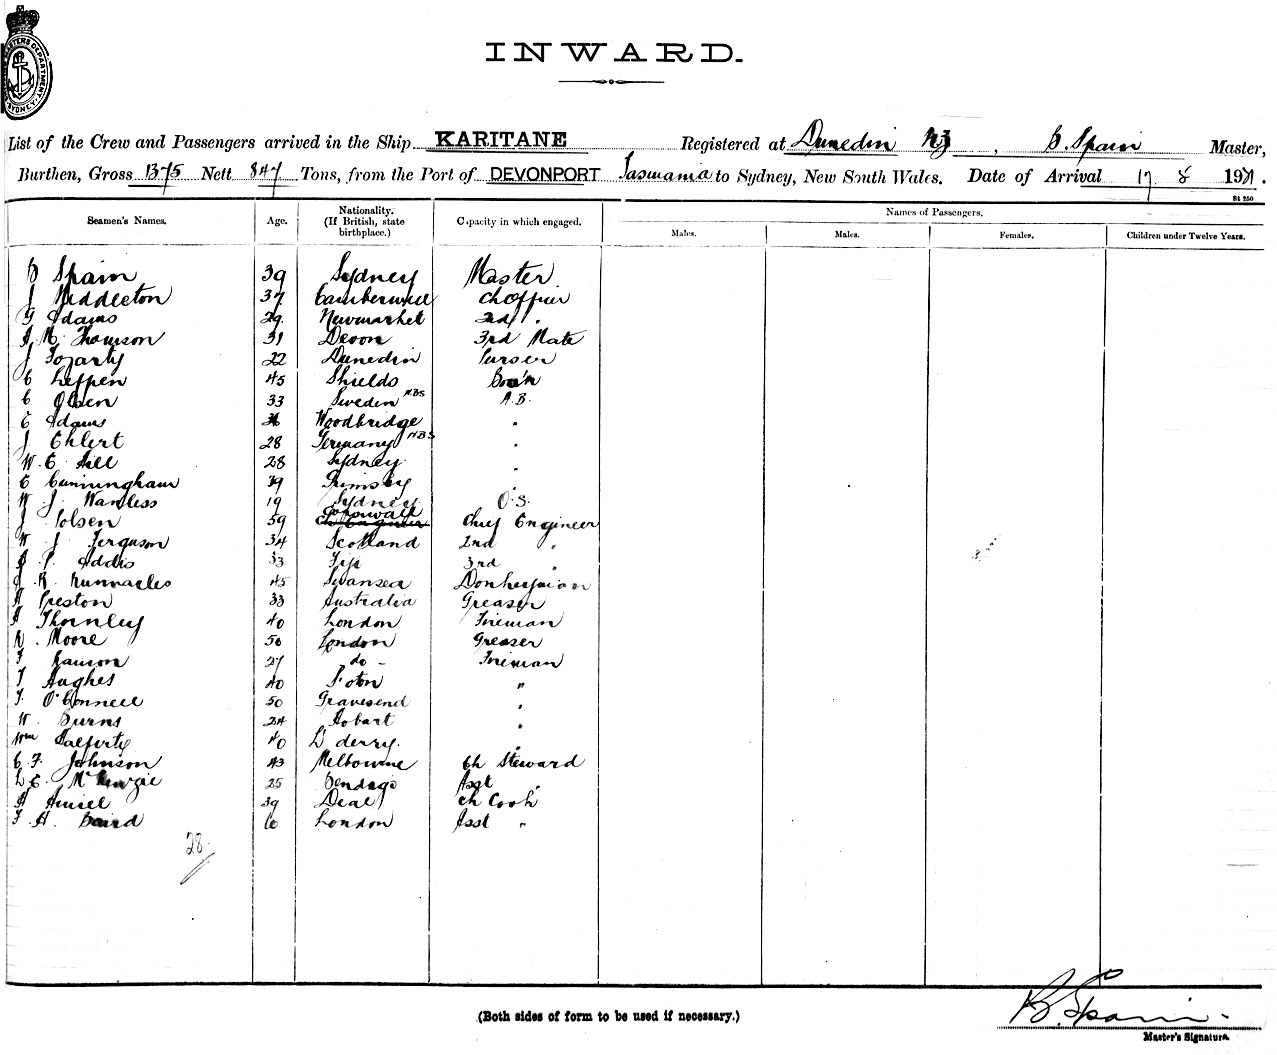 INWARD.
List of the Crew and Passengers arrived in the Ship KARITANE Registered at Dunedin NZ, B. Spain Master,
Burthen, Gross 1375 Nett 847 Tons, from the Port of DEVONPORT Tasmania to Sydney, New South Wales. Date of Arrival 17. 8 1921.
St 250
Seamen's Names. Age. Nationality. (If British, state birthplace.) Capacity in which engaged. Names of Passengers.
Males. Males. Females. Children under Twelve Years.
B Spain 39 Sydney Master
J Middleton 37 Camberwell Ch Officer
G Adams 29 Newmarket 2nd "
A M Thomson 31 Devon 3rd Mate
J Fogarty 22 Dunedin Purser
C Leppen 45 Shields Bos'n
C Olsen 33 Sweden NBS A.B.
E Adams Woodbridge "
J Ehlert 28 Germany NBS "
W. E Hill 28 Sydney "
E Cunningham 39 Grimsby "
W J. Wanless 19 Sydney O.S.
J Polsen 59 Cornwall Chief Engineer
W J Ferguson 34 Scotland 2nd "
P. Addis 33 Fiji 3rd "
J. R. Runnacles 45 Swansea Donkeyman
A Preston 33 Australia Greaser
A Thornley 40 London Fireman
R. Moore 50 London Greaser
F 27 do - Fireman
T Hughes 40 "
T. O'Connell 50 Gravesend "
W. Burns 24 Hobart "
Wm 40 L'derry. "
C. F. Johnson 43 Melbourne Ch Steward
L E. McKenzie 25 Bendigo Asst "
A 39 Deal Ch Cook
F. A. Baird London Asst "
28.
(Both sides of form to be used if necessary.)
B. Spain
Master's Signature.